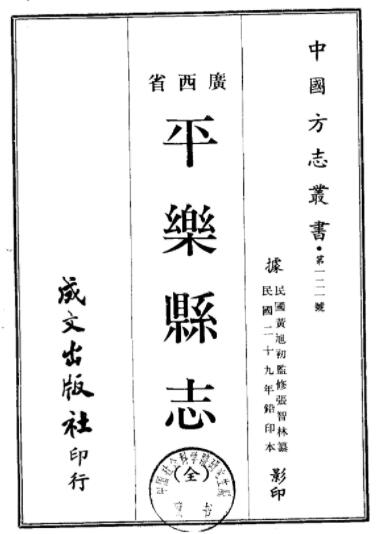 中國方志叢書•第一二一號
據 民國黃旭初監修張智林纂
民國二十九年鉛印本 影印
廣西省
平樂縣志
(全)
成文出版社印行